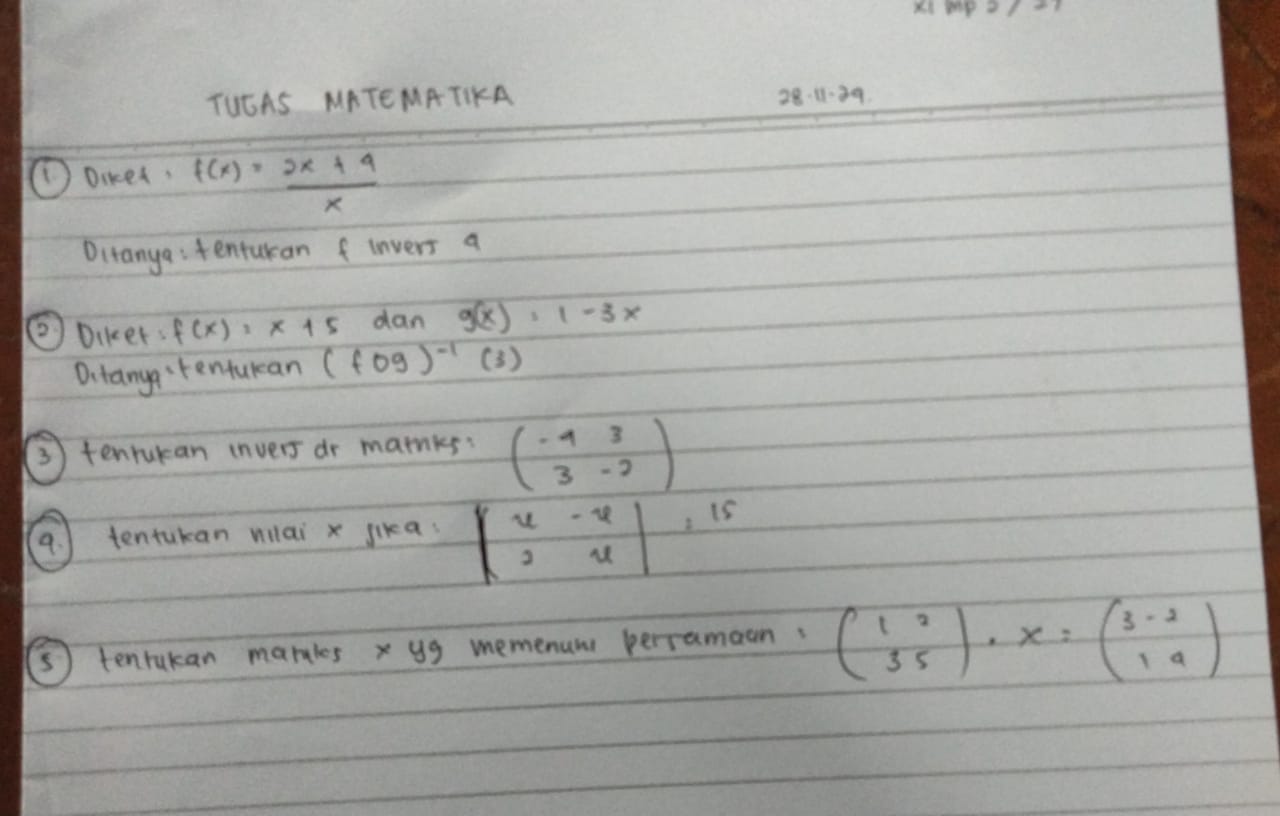 XI MP
TUGAS MATEMATIKA 28-11-24.
① Diket : f(x) = 2x + 4
x
Ditanya : tentukan f invers 4
② Diket : f(x) = x + 5 dan g(x) = 1 - 3x
Ditanya : tentukan (f o g)⁻¹ (3)
③ tentukan invers dr matriks : ( -4 3 )
3 -2
④ tentukan nilai x jika : | x -x | = 15
2 x
⑤ tentukan matriks x yg memenuhi persamaan : ( 1 2 ) . x = ( 3 -2 )
3 5 1 4